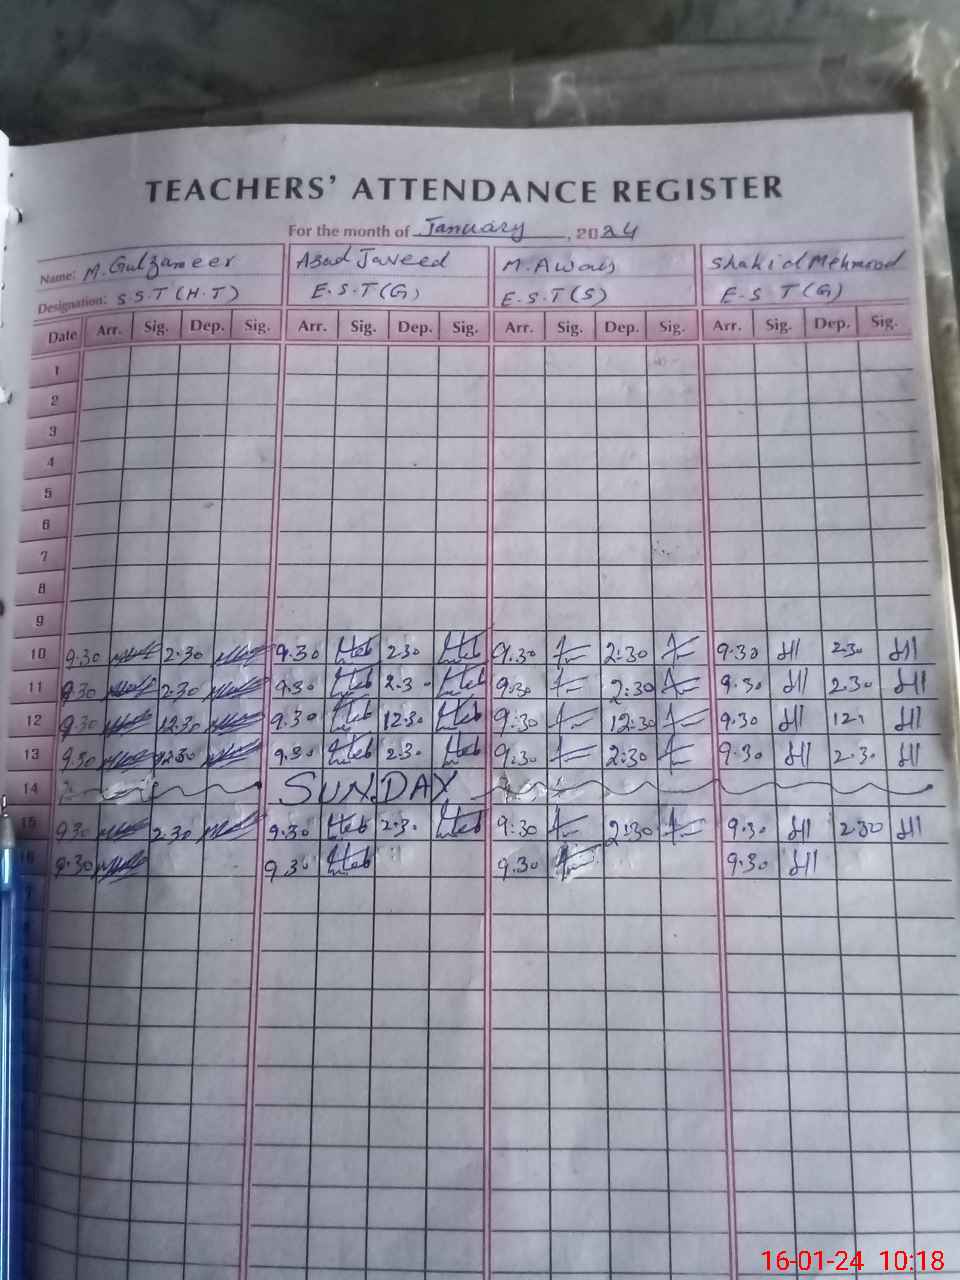 TEACHERS' ATTENDANCE REGISTER
For the month of January, 2024
Name: M. Gulzameer Asad Javeed M. Awais Shahid Mehmood
Designation: S.S.T (H.T) E.S.T (G) E.S.T (S) E.S T (G)
Date Arr. Sig. Dep. Sig. Arr. Sig. Dep. Sig. Arr. Sig. Dep. Sig. Arr. Sig. Dep. Sig.
1
2
3
4
5
6
7
8
9
10 9.30 2.30 9.30 2.30 9.30 2:30 9.30 2.30
11 9.30 2.30 9.30 2.30 9.30 2:30 9.30 2.30
12 9.30 12.30 9.30 12.30 9:30 12:30 9.30
13 9.30 9.30 2.30 9.30 2:30 9.30 2.30
14 SUNDAY
15 9.30 2.30 9.30 2.30 9:30 2:30 9.30 2.30
16 9.30 9.30 9.30 9.30
16-01-24 10:18